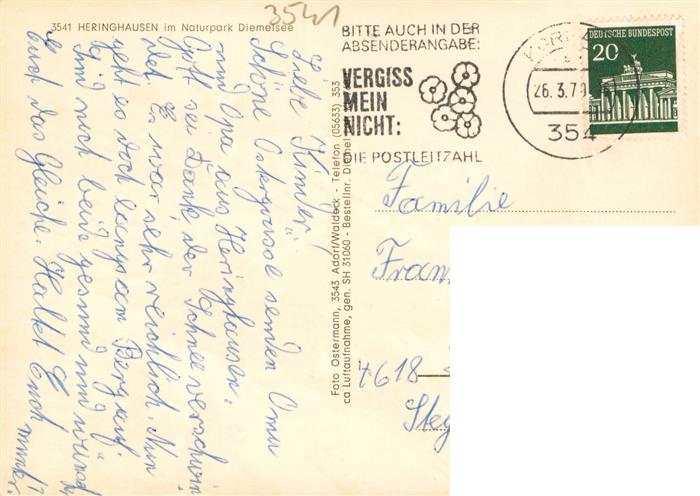 3541
3541 HERINGHAUSEN im Naturpark Diemelsee
Liebe Kinder!
Schöne Ostergrüsse senden Oma
und Opa aus Heringhausen.
Gott sei Dank, der Schnee verschwin
det. Er war sehr reichlich. Nun
geht es doch langsam Bergauf.
Sind noch beide gesund und
Euch das Gleiche. Haltet Euch munter.
Foto Ostermann, 3543 Adorf/Waldeck - Telefon (05633) 353
ca Luftaufnahme, gen. SH 31060 - Bestellnr. Diemel
BITTE AUCH IN DER
ABSENDERANGABE:
VERGISS
MEIN
NICHT:
DIE POSTLEITZAHL
26.3.7
354
DEUTSCHE BUNDESPOST
20
Familie
Fran
4618